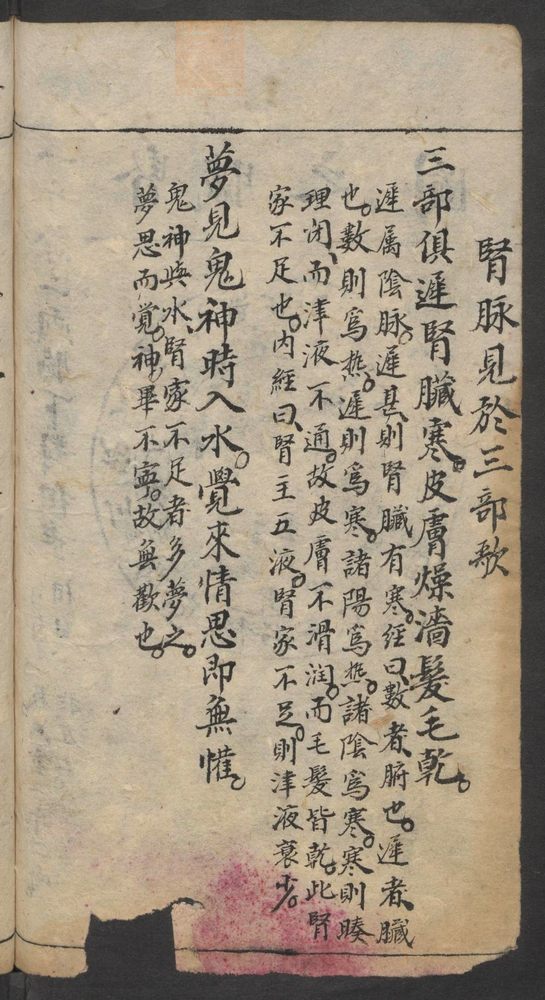 腎脉見於三部歌
三部俱遲腎臟寒。皮膚燥濇髮毛乾。
遲属陰脉。遲甚則腎臟有寒。經曰、數者、腑也。遲者、臟
也。數則爲热。遲則爲寒。諸陽爲热。諸陰爲寒。寒則腠
理闭、而津液不通。故皮膚不滑润。而毛髮皆乾。此腎
家不足也。内經曰、腎主五液。腎家不足。則津液衰少。
夢見鬼神時入水。覺來情思即無懽。
鬼神與水、腎家不足者、多夢之。
夢思而覺。神畢不寧。故無歡也。